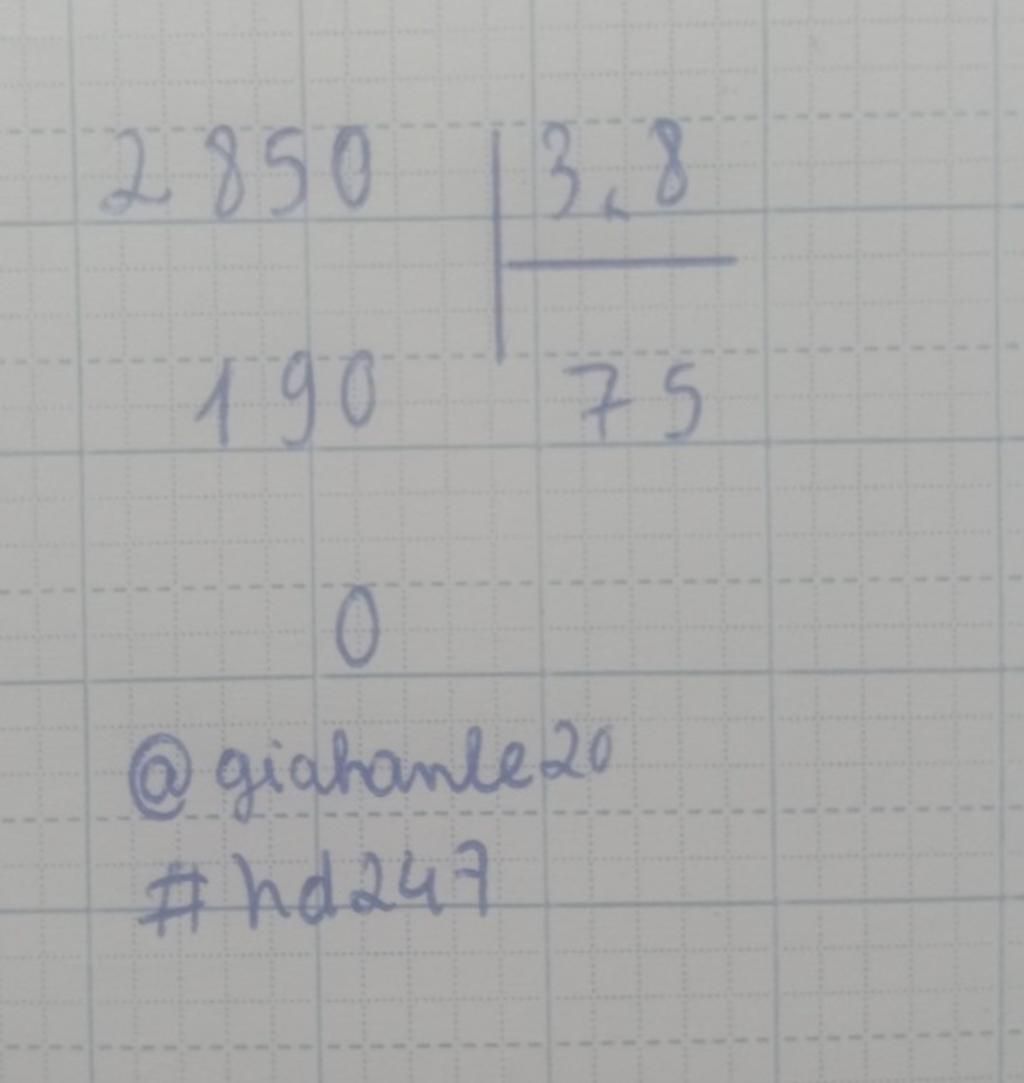 2850 3,8
190 75
0
@giahanle20
#hd247